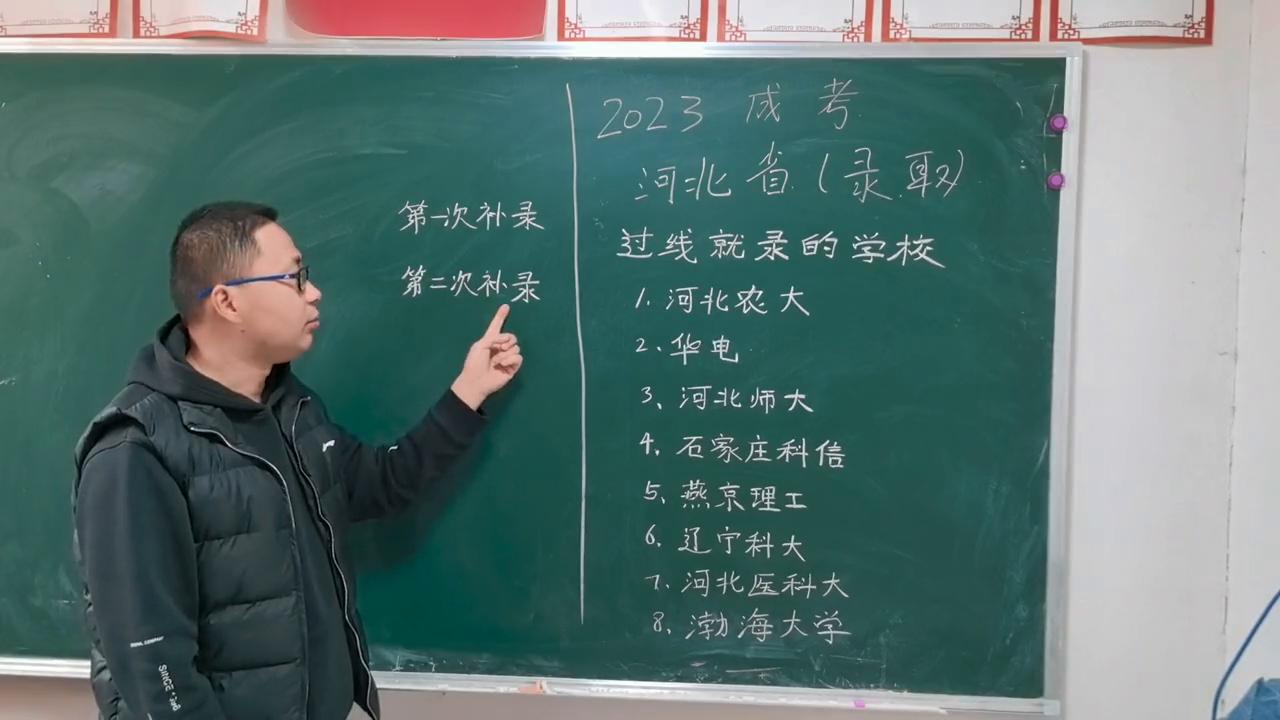 第一次补录
第二次补录
2023 成考
河北省(录取)
过线就录的学校
1. 河北农大
2、华电
3、河北师大
4、石家庄科信
5、燕京理工
6、辽宁科大
7、河北医科大
8、渤海大学
SINCE